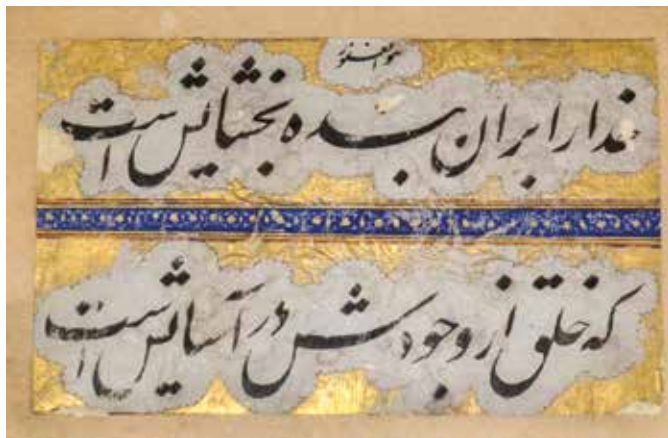 هو الغفور
خدا را بر آن بنده بخشایش است
که خلق از وجودش در آسایش است